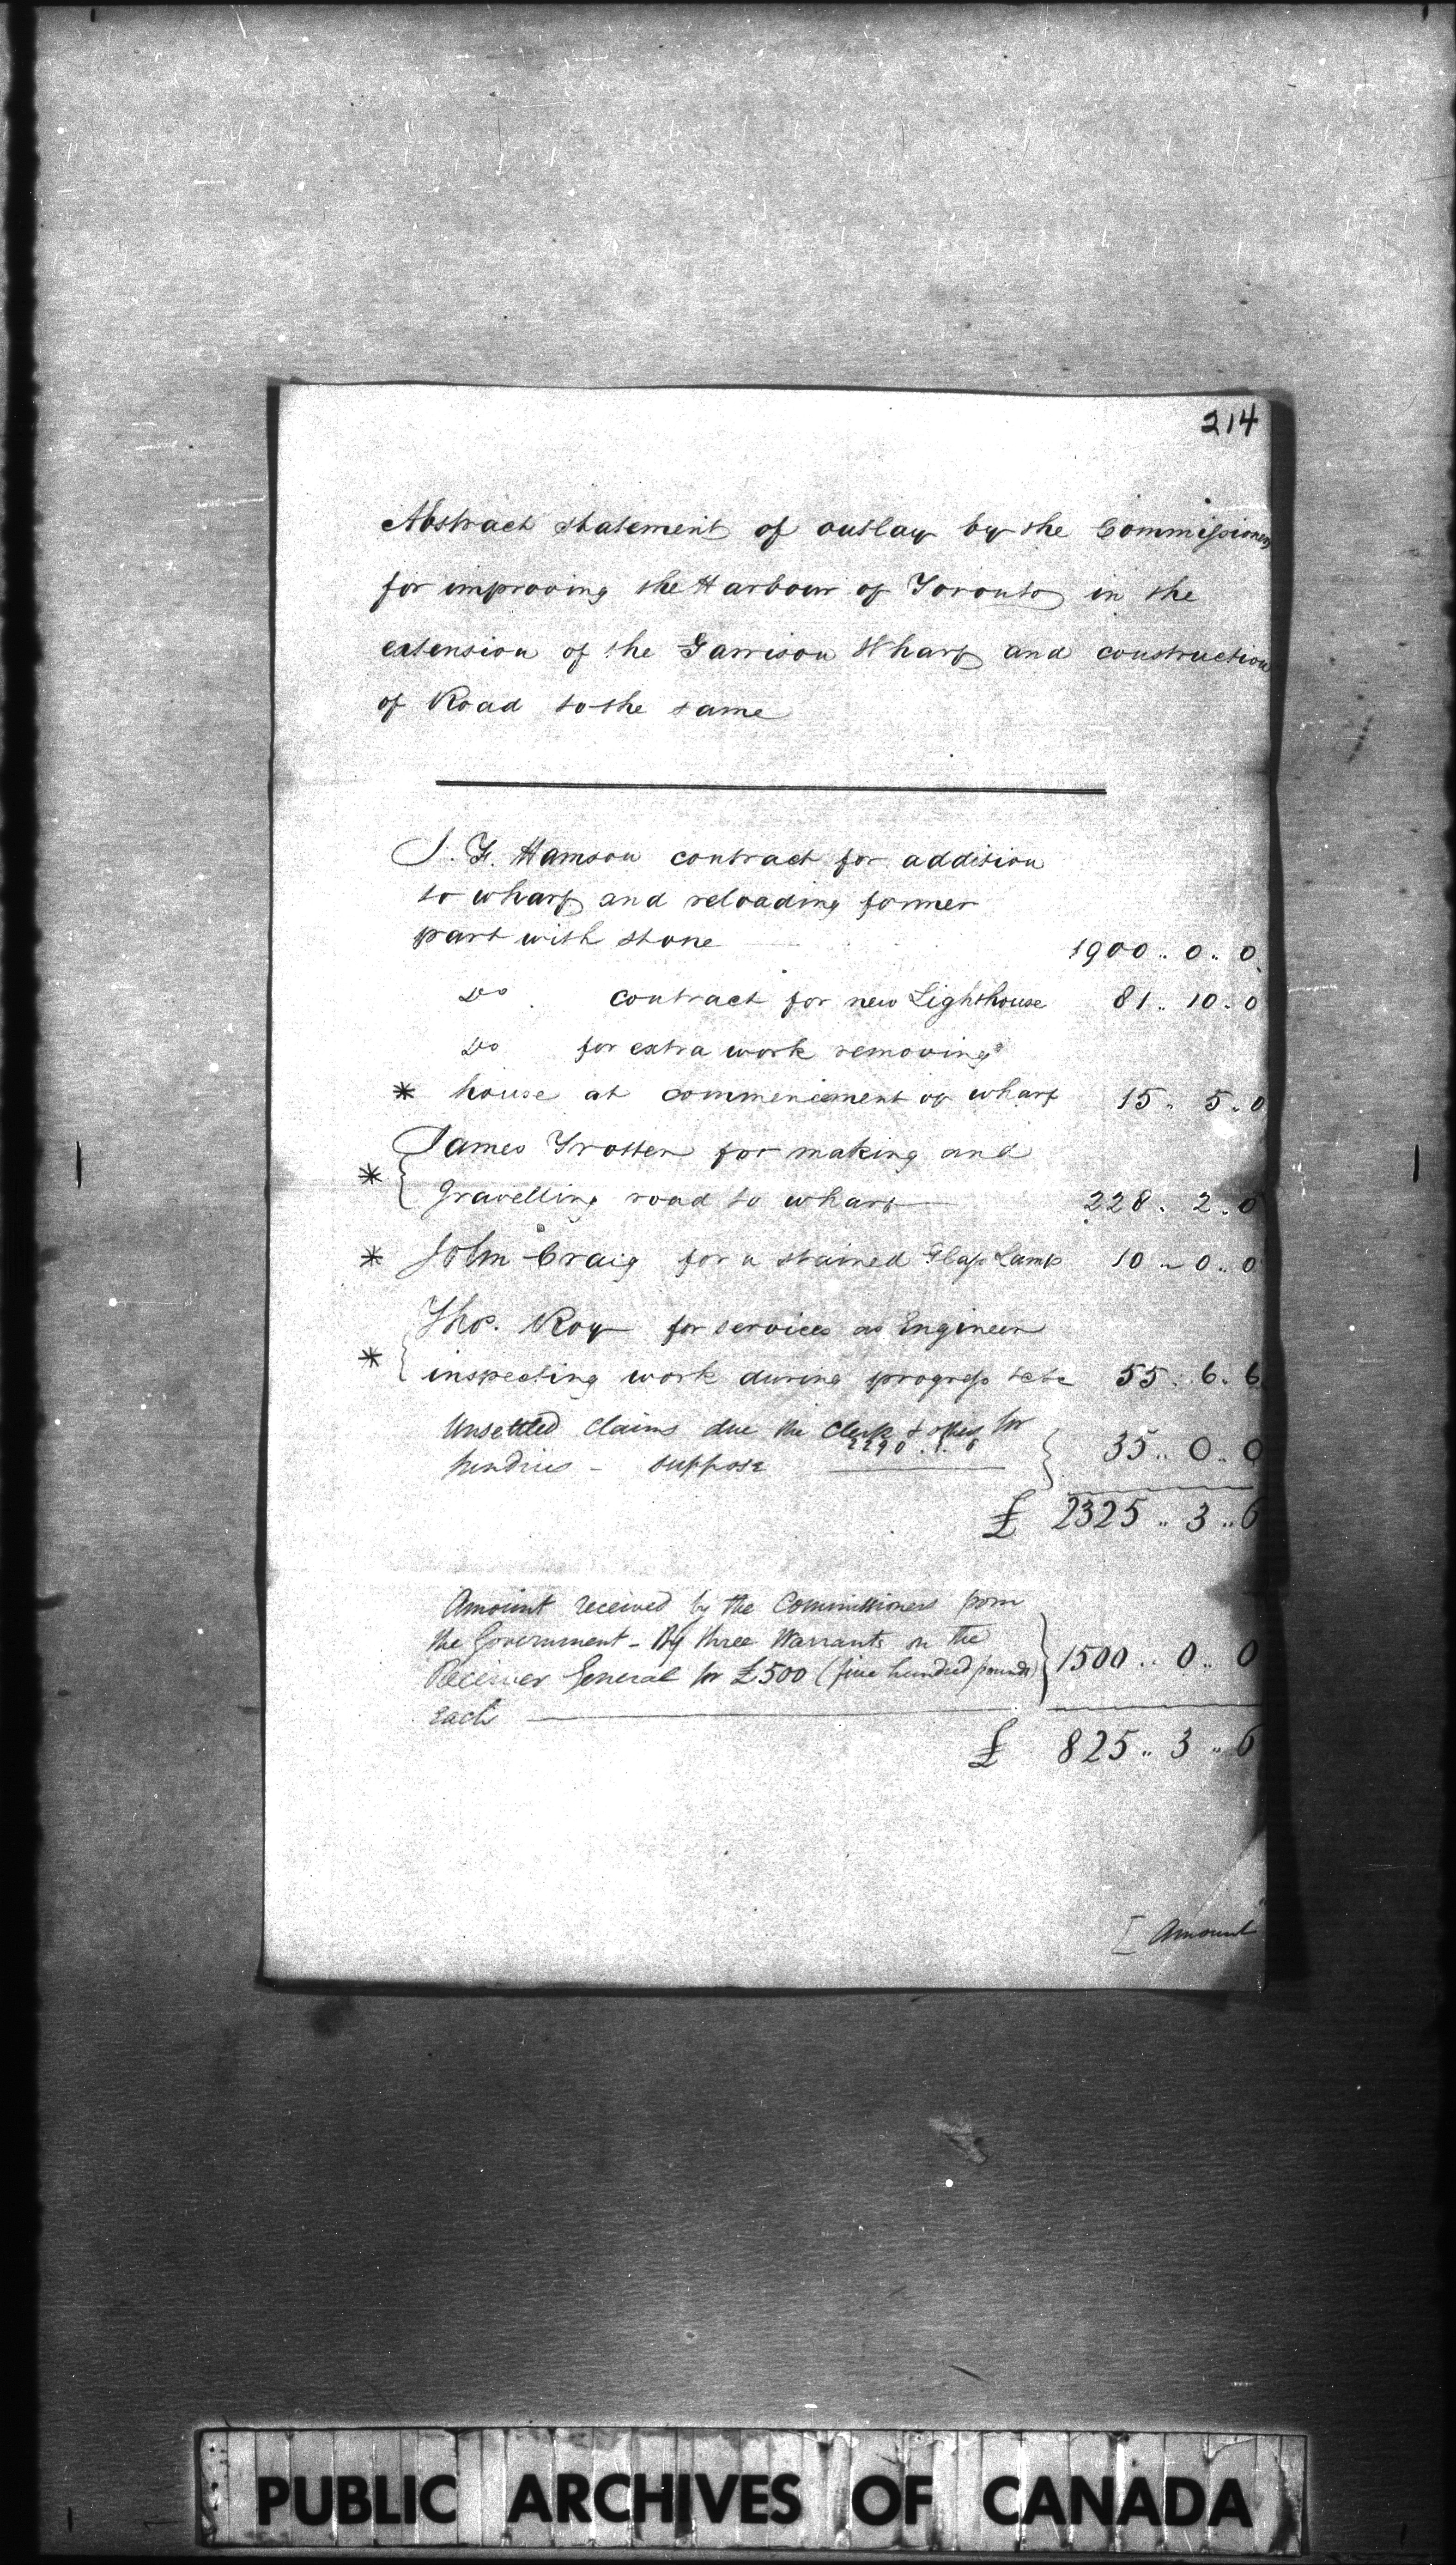 214
Abstract statement of outlay by the Commissioners
for improving the Harbour of Toronto in the
extension of the Garrison Wharf and construction
of Road to the same
J. F. Hamson contract for addition
to wharf and reloading former
part with stone 1900 .. 0 .. 0
Do contract for new Lighthouse 81 .. 10 .. 0
Do for extra work removing
* house at commencement of wharf 15 .. 5 .. 0
James Trotter for making and
* { Gravelling road to wharf 228 .. 2 .. 0
* John Craig for a stained Glass Lamp 10 .. 0 .. 0
Thos. Roy for services as Engineer
* { inspecting work during progress &c &c 55 .. 6 .. 6
Unsettled claims due the Clerk & others for
2290 . 3 . 6
Sundries - suppose } 35 .. 0 .. 0
£ 2325 .. 3 .. 6
Amount received by the Commissioners from
the Government - By three Warrants on the
Receiver General for £500 (five hundred pounds) } 1500 .. 0 .. 0
each
£ 825 .. 3 .. 6
[ Amount
PUBLIC ARCHIVES OF CANADA